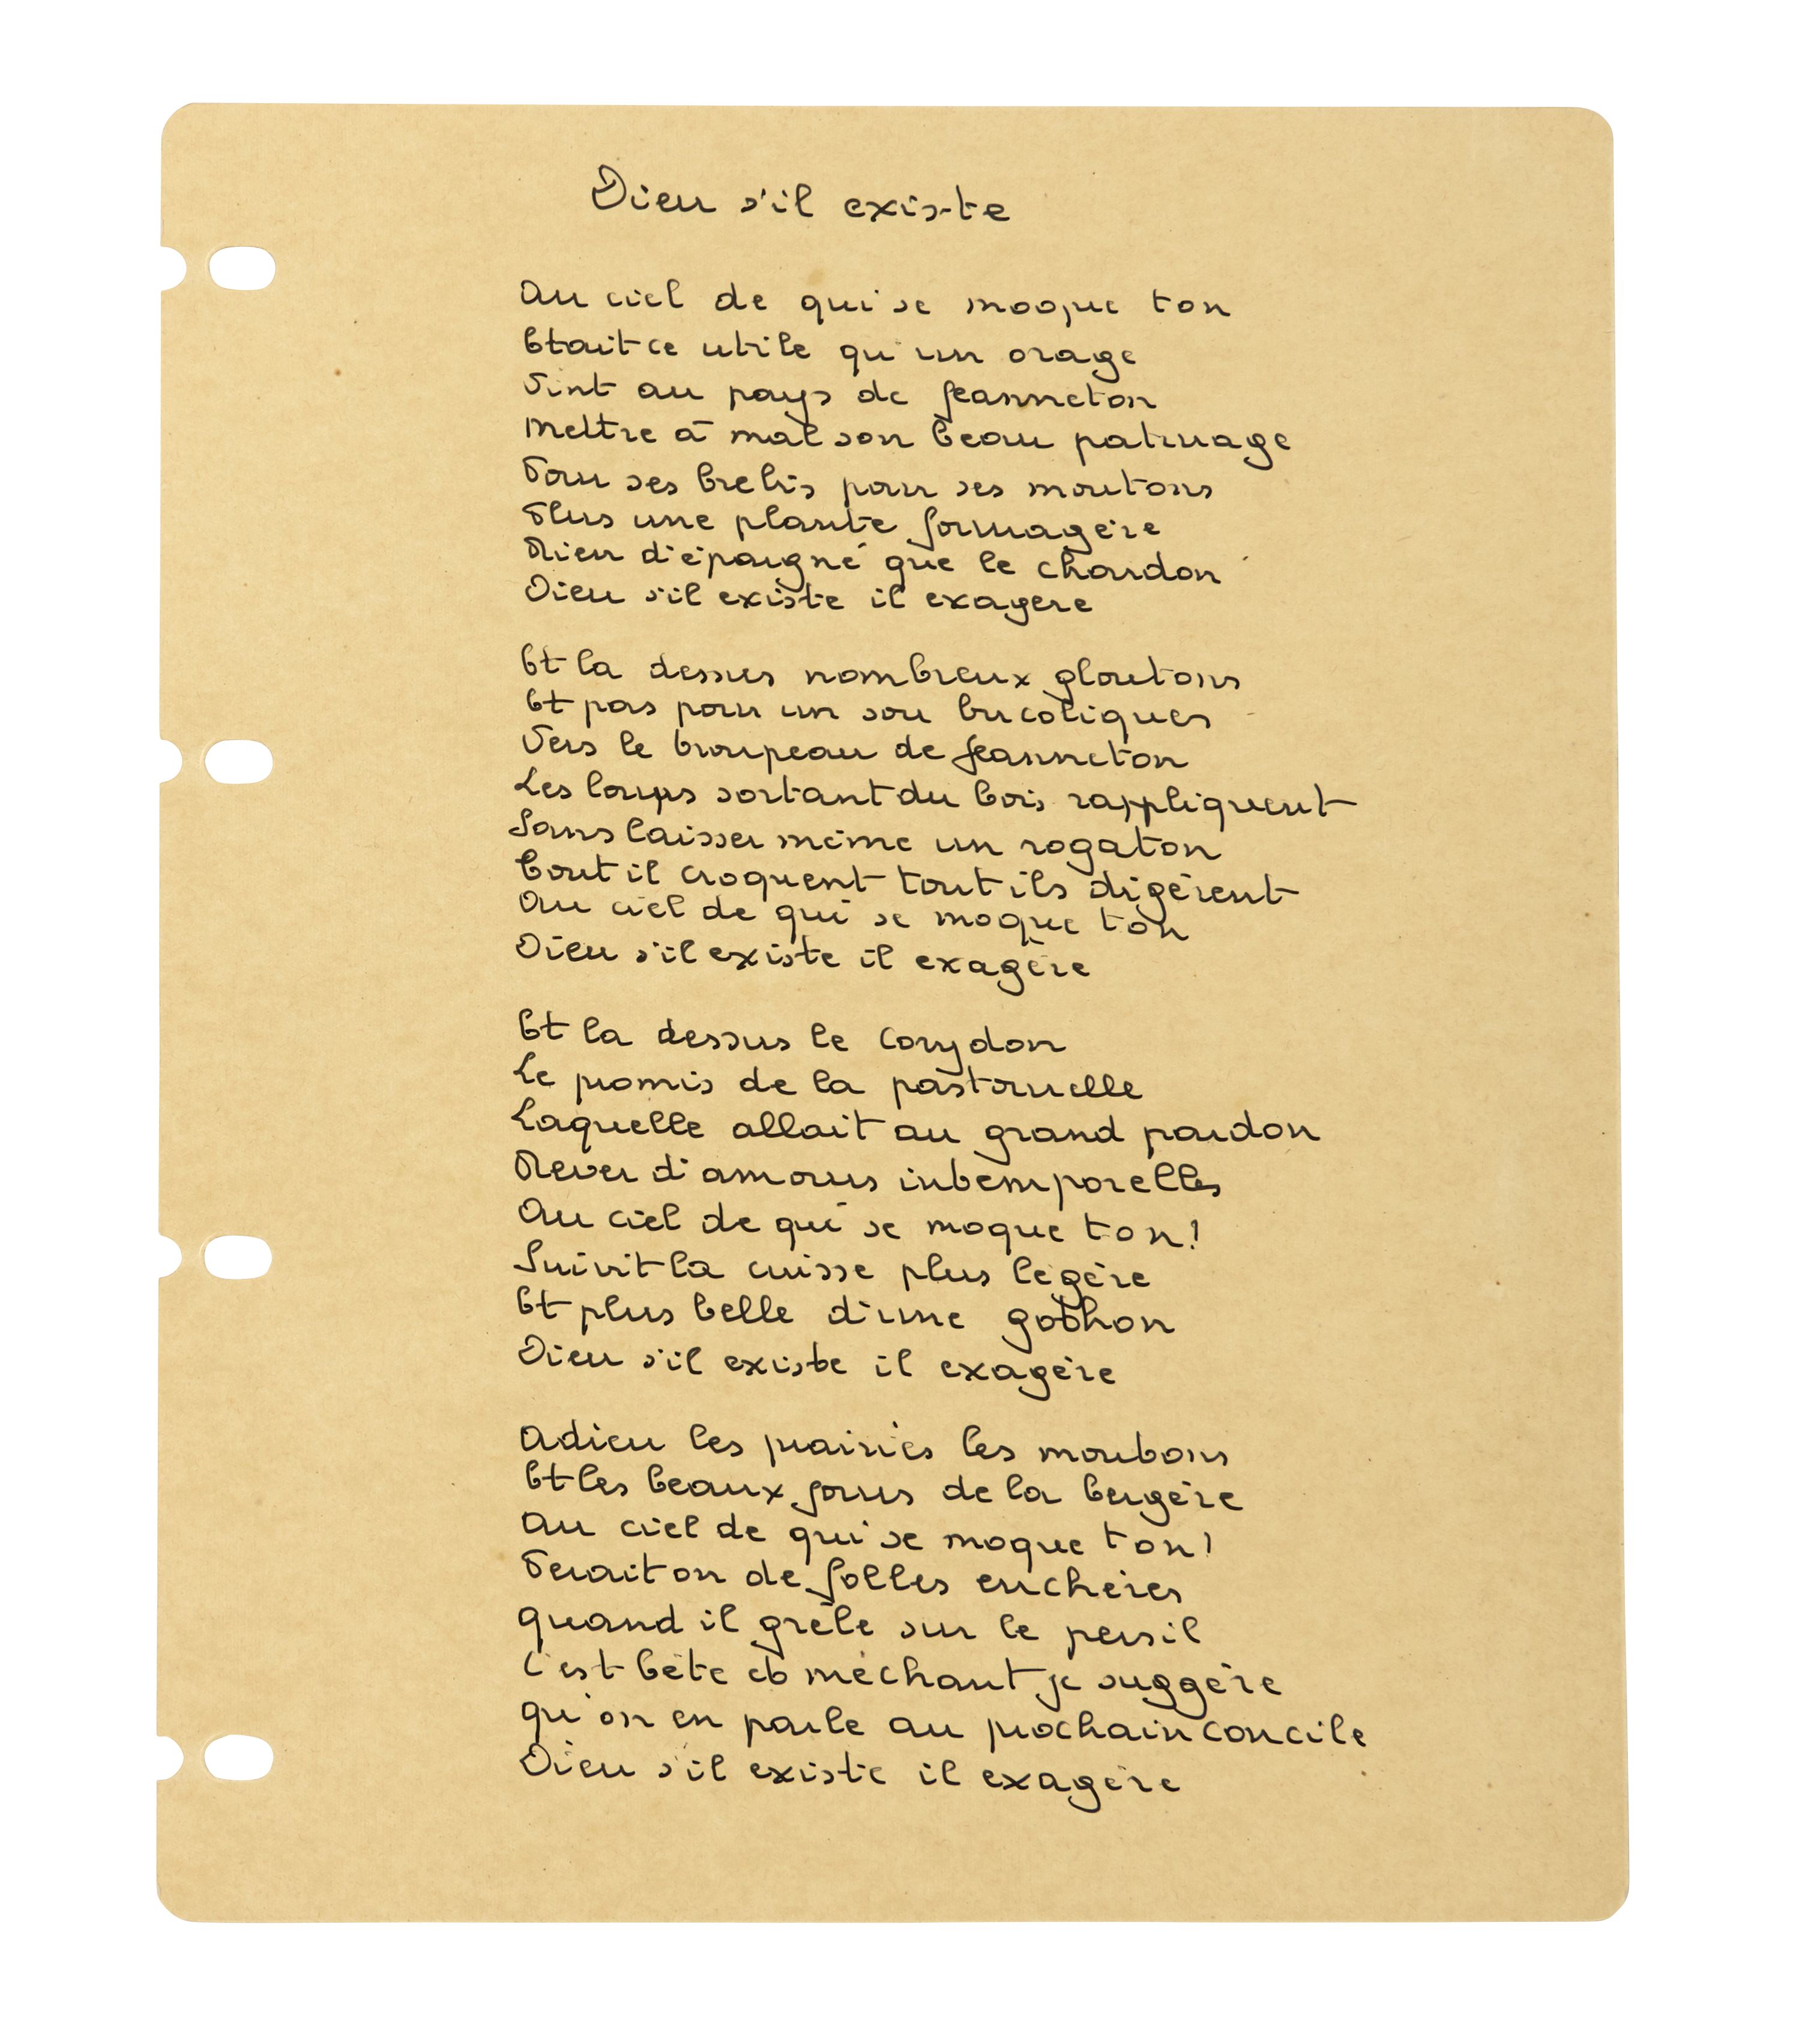 Dieu s'il existe
Au ciel de qui se moque ton
Etait ce utile qu'un orage
Vint au pays de Jeanneton
Mettre à mal son beau paturage
Pour ses brebis pour ses moutons
Plus une plante fourragère
Rien d'épargné que le chardon
Dieu s'il existe il exagere
Et la dessus nombreux gloutons
Et pas pour un sou bucoliques
Vers le troupeau de Jeanneton
Les loups sortant du bois rappliquent
Sans laisser même un rogaton
Tout il croquent tout ils digèrent
Au ciel de qui se moque ton
Dieu s'il existe il exagère
Et la dessus le Corydon
Le promis de la pastourelle
Laquelle allait au grand pardon
Rever d'amours intemporelles
Au ciel de qui se moque ton!
Suivit la cuisse plus légère
Et plus belle d'une gothon
Dieu s'il existe il exagère
Adieu les prairies les moutons
Et les beaux jours de la bergère
Au ciel de qui se moque ton!
Ferait on de folles enchères
quand il grêle sur le persil
C'est bête et méchant je suggère
qu'on en parle au prochain concile
Dieu s'il existe il exagère